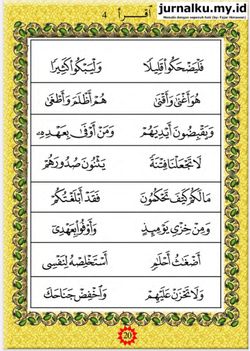 jurnalku.my.id
Menulis dengan sepenuh hati (by: Fajar Hernawan)
أَقْرَأُ 4
فَلْيَضْحَكُوا۟ قَلِيلًا وَلْيَبْكُوا۟ كَثِيرًا
هُوَ أَغْنَىٰ وَأَقْنَىٰ هُمْ أَظْلَمَ وَأَطْغَىٰ
وَيَقْبِضُونَ أَيْدِيَهُمْ وَمَنْ أَوْفَىٰ بِعَهْدِهِۦ
لَا تَجْعَلْنَا فِتْنَةً يَثْنُونَ صُدُورَهُمْ
مَا لَكُمْ كَيْفَ تَحْكُمُونَ فَقَدْ أَبْلَغْتُكُمْ
وَمِنْ خِزْىِ يَوْمِئِذٍ وَأَوْفُوا۟ بِعَهْدِىٓ
أَضْغَٰثُ أَحْلَٰمٍ أَسْتَخْلِصْهُ لِنَفْسِى
وَلَا تَحْزَنْ عَلَيْهِمْ وَٱخْفِضْ جَنَاحَكَ
20